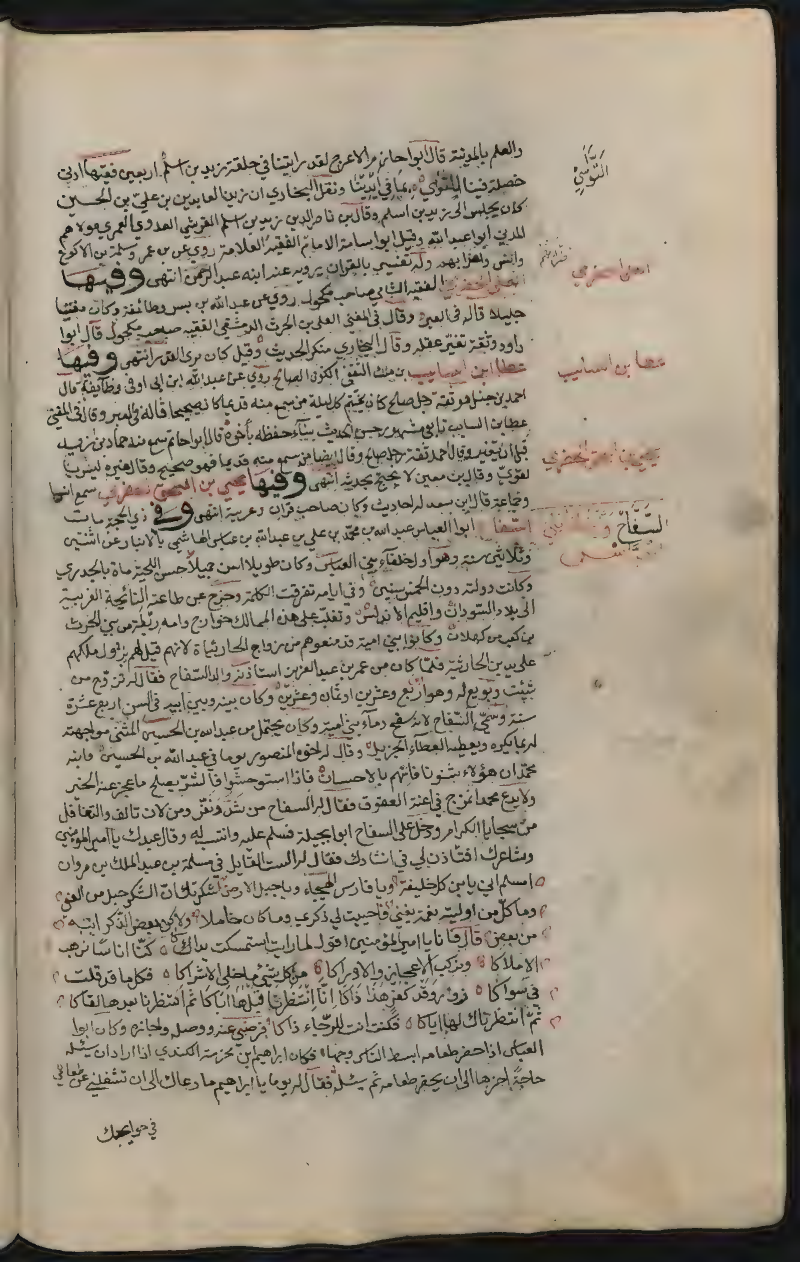 والعلم بالمدينة قال ابوا حازم مر الاعرج لقد رايتنا في حلقة زيد بن اسلم اربعين فقيها ادنى
خصلة فينا التواسي بما في ايدينا ونقل البخاري ان زين العابدين بن علي بن الحسين
كان يجلس الى زيد بن اسلم وقال بن ناصر الدين زيد بن اسلم القرشي العدوي العمري مولاهم
المدني ابوا عبد الله وقيل ابوا اسامة الامام الفقيه العلامة روي عن بن عمر وسلمة بن الاكوع
وانس واضرابهم وله تفسير بالقران يرويه عنه ابنه عبد الرحمن انتهى وفيها
العلى الحضرمي الفقيه الشامي صاحب مكحول روي عن عبد الله بن بسر وطائفة وكان مفتيا
جليلا قاله في العبر وقال في المغني العلى بن الحرث الدمشقي الفقيه صاحب مكحول قال ابوا
داود ثقة تغير عقله وقال البخاري منكر الحديث وقيل كان يرى القدر انتهى وفيها
عطا ابن السايب بن ملك الثقفي الكوفي الصالح روي عن عبد الله ابن ابي اوفى وطايفة قال
احمد بن حنبل هو ثقة رجل صالح كان يختم كل ليلة من سمع منه قديما كان صحيحا قاله في العبر وقال في المغني
عطا بن السايب تابعي مشهور حسن الحديث ساء حفظه بأخرة قال ابوا حاتم سمع منه حماد بن زيد
قبل ان يتغير وقال احمد ثقة رجل صالح وقال ايضا من سمع منه قديما فهو صحيح وقال غيره ليس بالقوي
وقال بن معين لا يحتج بحديثه انتهى وفيها يحيى بن اسحق الحضرمي سمع انسا
وجماعة قال ابن سعد له احاديث وكان صاحب قران وعربية انتهى وفي ذي الحجة مات
السفاح ابوا العباس عبد الله بن محمد بن علي بن عبد الله بن عباس الهاشمي بالانبار عن اثنتين
وثلاثين سنة وهو اول خلفاء بني العباس وكان طويلا ابيض جميلا حسن اللحية مات بالجدري
وكانت دولته دون الخمس سنين وفي ايامه تفرقت الكلمة وخرج عن طاعته الناحية الغربية
الى بلاد السودان واقليم الاندلس وتغلب على هذه الممالك خوارج وامه ريطة من بني الحرث
بن كعب من كهلان وكانوا بني امية قد منعوهم من زواج الحارثيات لانهم قيل لهم يزول ملكهم
على يد بن الحارثية فلما كان من عمر بن عبد العزيز استاذنه والد السفاح فقال له تزوج من
شيت وبويع له وهو اربع وعشرين او ثمان وعشرين وكان بينه وبين ابيه في السن اربع عشرة
سنة وسمي السفاح لانه سفح دماء بني امية وكان يحتمل من عبد الله بن الحسين المثنى مواجهته
له بما يكره ويعطيه العطاء الجزيل وقال له اخوه المنصور يوما في عبد الله بن الحسين وابنه
محمد ان هؤلاء يشنونا فانهم بالاحسان فاذا استوحشوا فالشر يصلح ما عجز عنه الخير
ولا يدع محمدا يمرح في اعنة العقوق فقال له السفاح من شدد نفر ومن لان تالف والتغافل
من سجايا الكرام ودخل على السفاح ابوا نخيلة فسلم عليه وانتسب له وقال عبدك يا امير المومنين
وشاعرك افتأذن لي في انشادك فقال له الست القايل في مسلمة بن عبد الملك بن مروان
امسلم اني يا بن كل خليفة ويا فارس الهيجاء ويا جبل الارض شكرتك ان الشكر حبل من التقى
وما كل من اوليته نعمة يقضي فاحييت لي ذكري وما كان خاملا ولكن بعض الذكر انبه
من بعض قال فانا يا امير المؤمنين اقول لما رايت استمسكت يداك كنا اناسا نرهب
الاملاكا ونركب الاعجاز والاوراكا من كل شيء ما خلى الاشراكا فكل ما قد قلت
في سواكا زور وقد كفر هذا ذاكا انا انتظرنا قبلها اباكا ثم انتظرنا بعدها اخاكا
ثم انتظرناك لها اياكا فكنت انت للرجاء ذاكا فرضي عنه ووصله واجازه وكان ابوا
العباس اذا حضر طعامه ابسط الناس وجها فكان ابراهيم بن مخرمة الكندي اذا اراد ان يسئله
حاجة اخرها الى ان يحضر طعامه ثم يسئله فقال له يوما يا ابراهيم ما دعاك الى ان تشغلني عن طعامي
في حوايجك
التوسي
العلى الحضرمي
عطا بن السايب
يحيى بن اسحق الحضرمي
السفاح